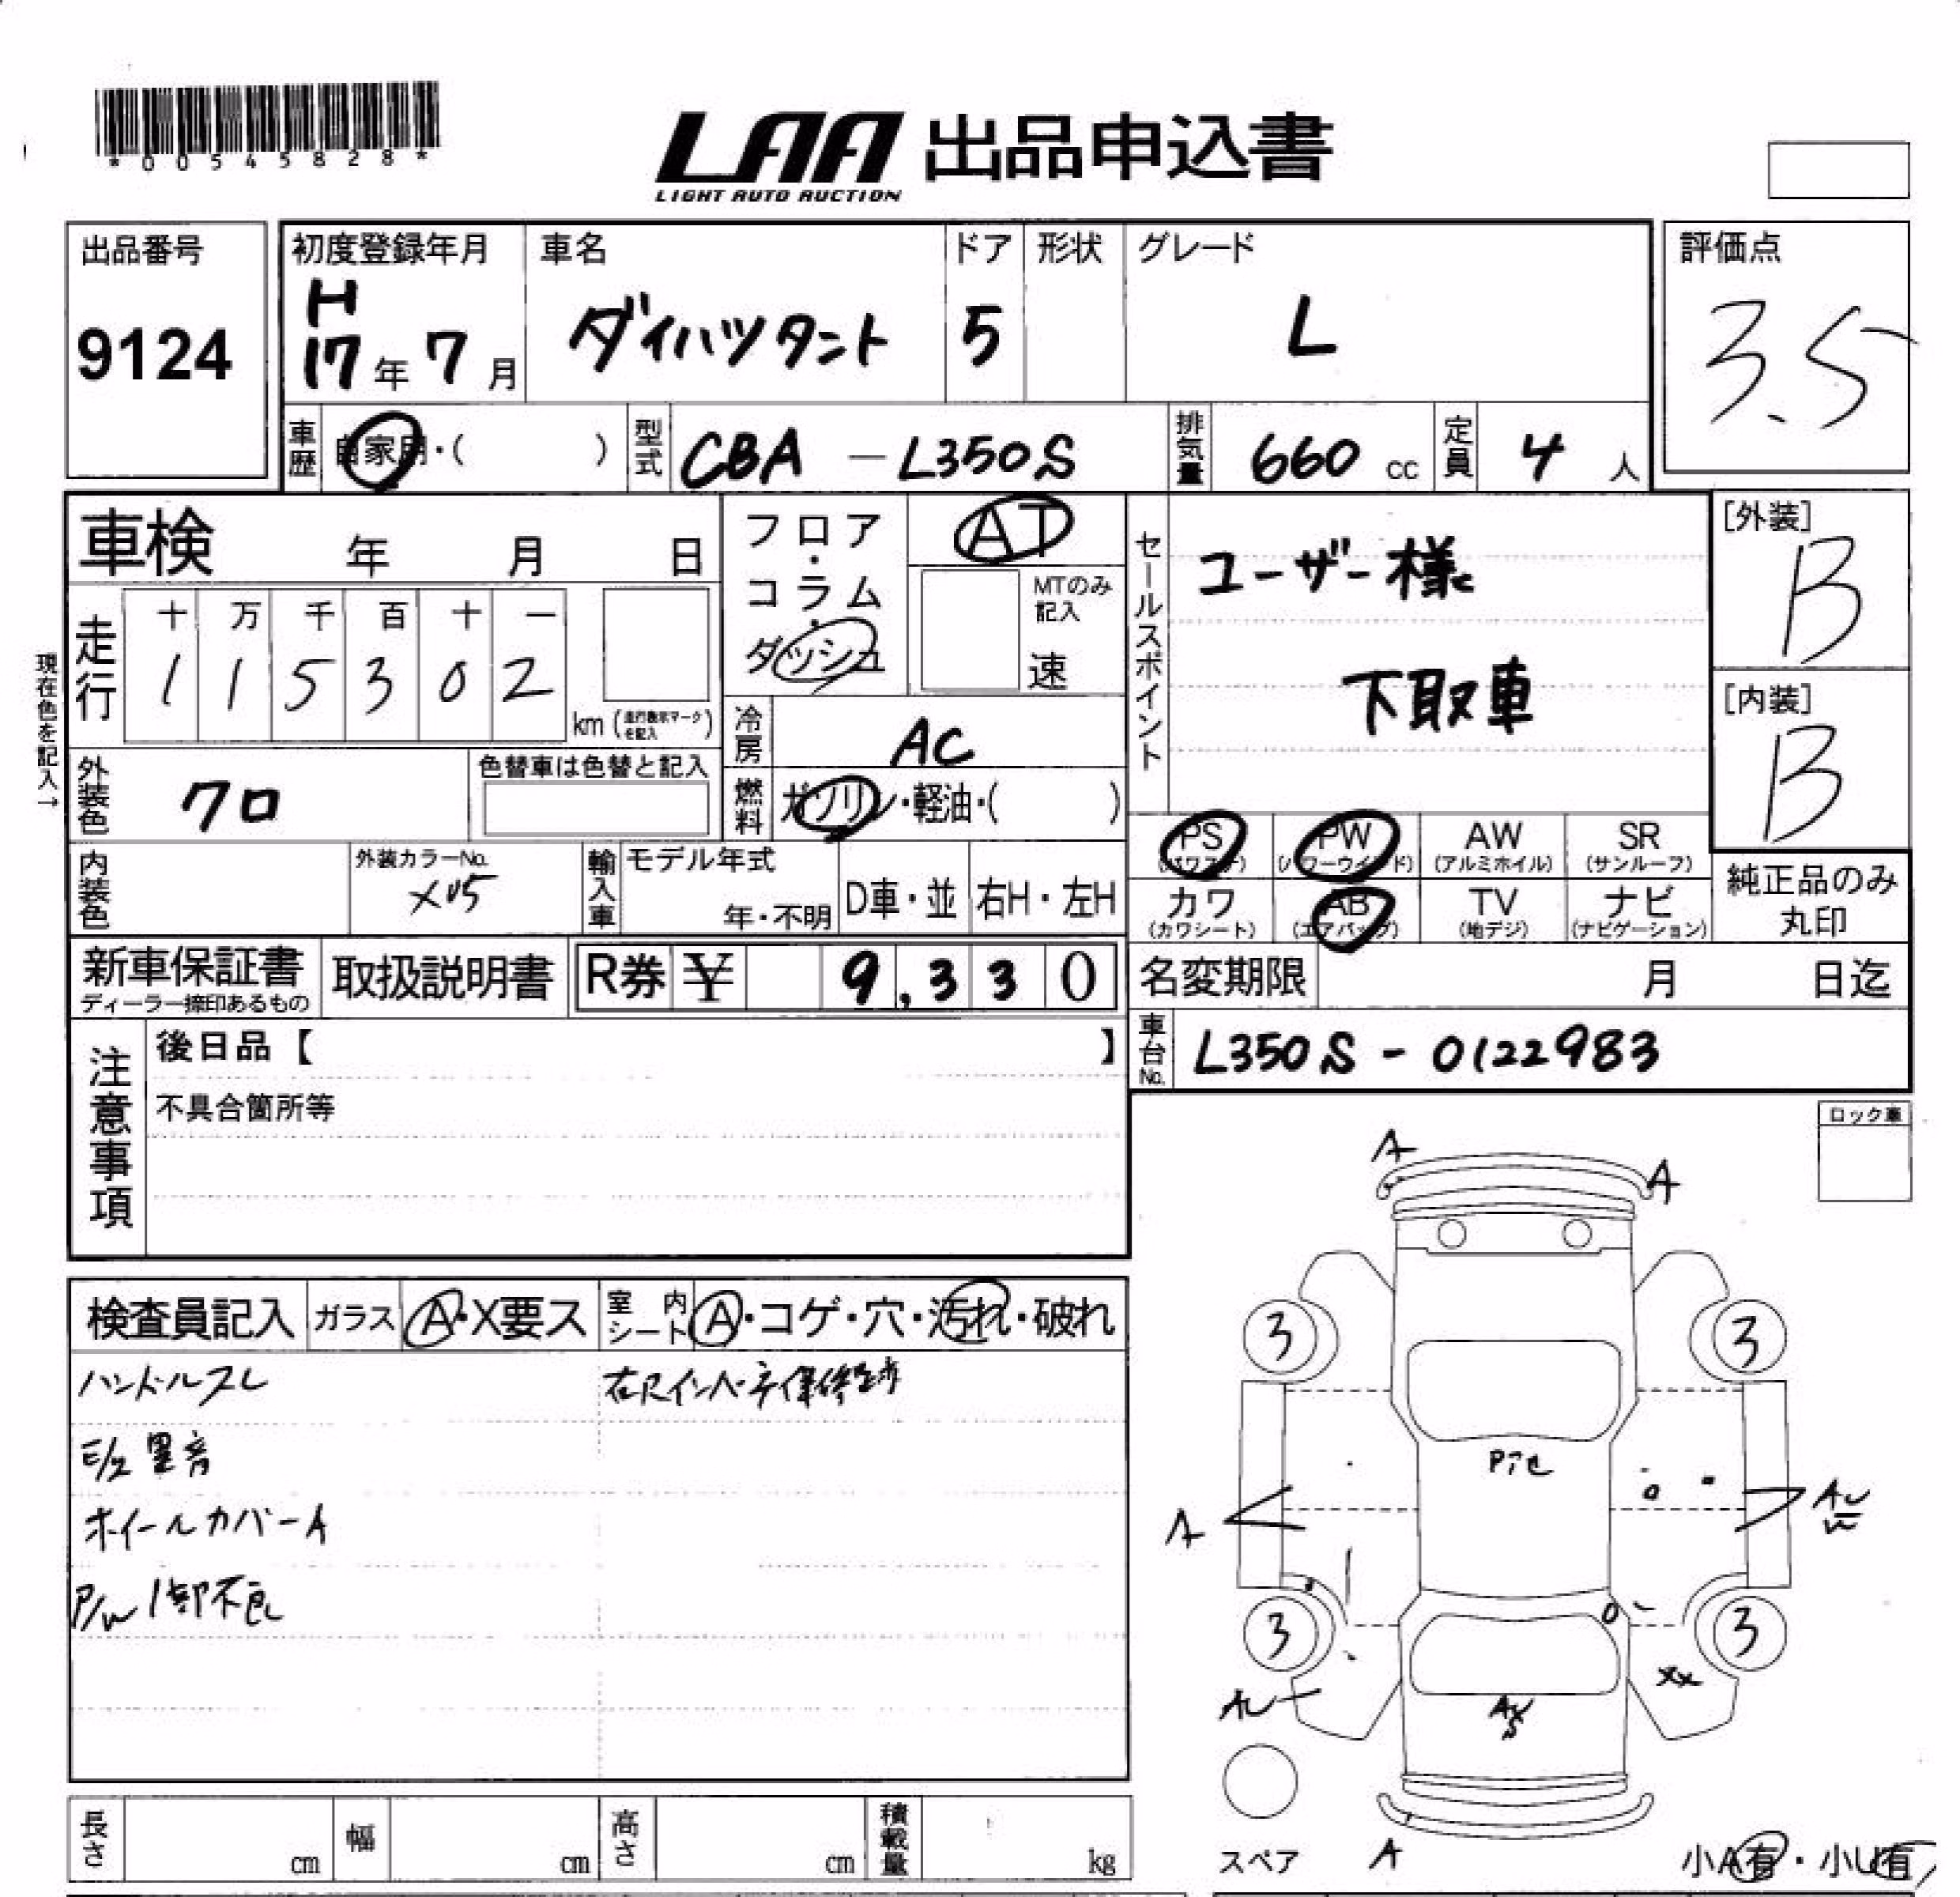 *00545828*
LAA 出品申込書
LIGHT AUTO AUCTION
出品番号
9124
初度登録年月
H
17年7月
車名
ダイハツタント
ドア
5
形状
グレード
L
評価点
3.5
車歴
自家用・( )
型式
CBA - L350S
排気量
660 cc
定員
4 人
車検 年 月 日
フロア・コラム・ダッシュ
AT
MTのみ記入
速
セールスポイント
ユーザー様
下取車
[外装]
B
[内装]
B
現在色を記入→
走行
十 万 千 百 十 一
1 1 5 3 0 2
km (走行表示マークを記入)
冷房
AC
外装色
クロ
色替車は色替と記入
燃料
ガソリン・軽油・( )
PS
(パワステ)
PW
(パワーウインド)
AW
(アルミホイル)
SR
(サンルーフ)
内装色
外装カラーNo.
X05
輸入車
モデル年式
年・不明
D車・並
右H・左H
カワ
(カワシート)
AB
(エアバッグ)
TV
(地デジ)
ナビ
(ナビゲーション)
純正品のみ
丸印
新車保証書
ディーラー捺印あるもの
取扱説明書
R券 ¥ 9,330
名変期限 月 日迄
車台No.
L350S - 0122983
注意事項
後日品【 】
不具合箇所等
ロック車
検査員記入
ガラス
A・X要ス
室内シート
A・コゲ・穴・汚れ・破れ
ハンドルスレ
右Rインパネ
E/g異音
ホイールカバーA
P/W1部不良
A
A
3
3
A
3
3
XX
スペア
A
小A有・小U有
長さ cm
幅 cm
高さ cm
積載量 kg